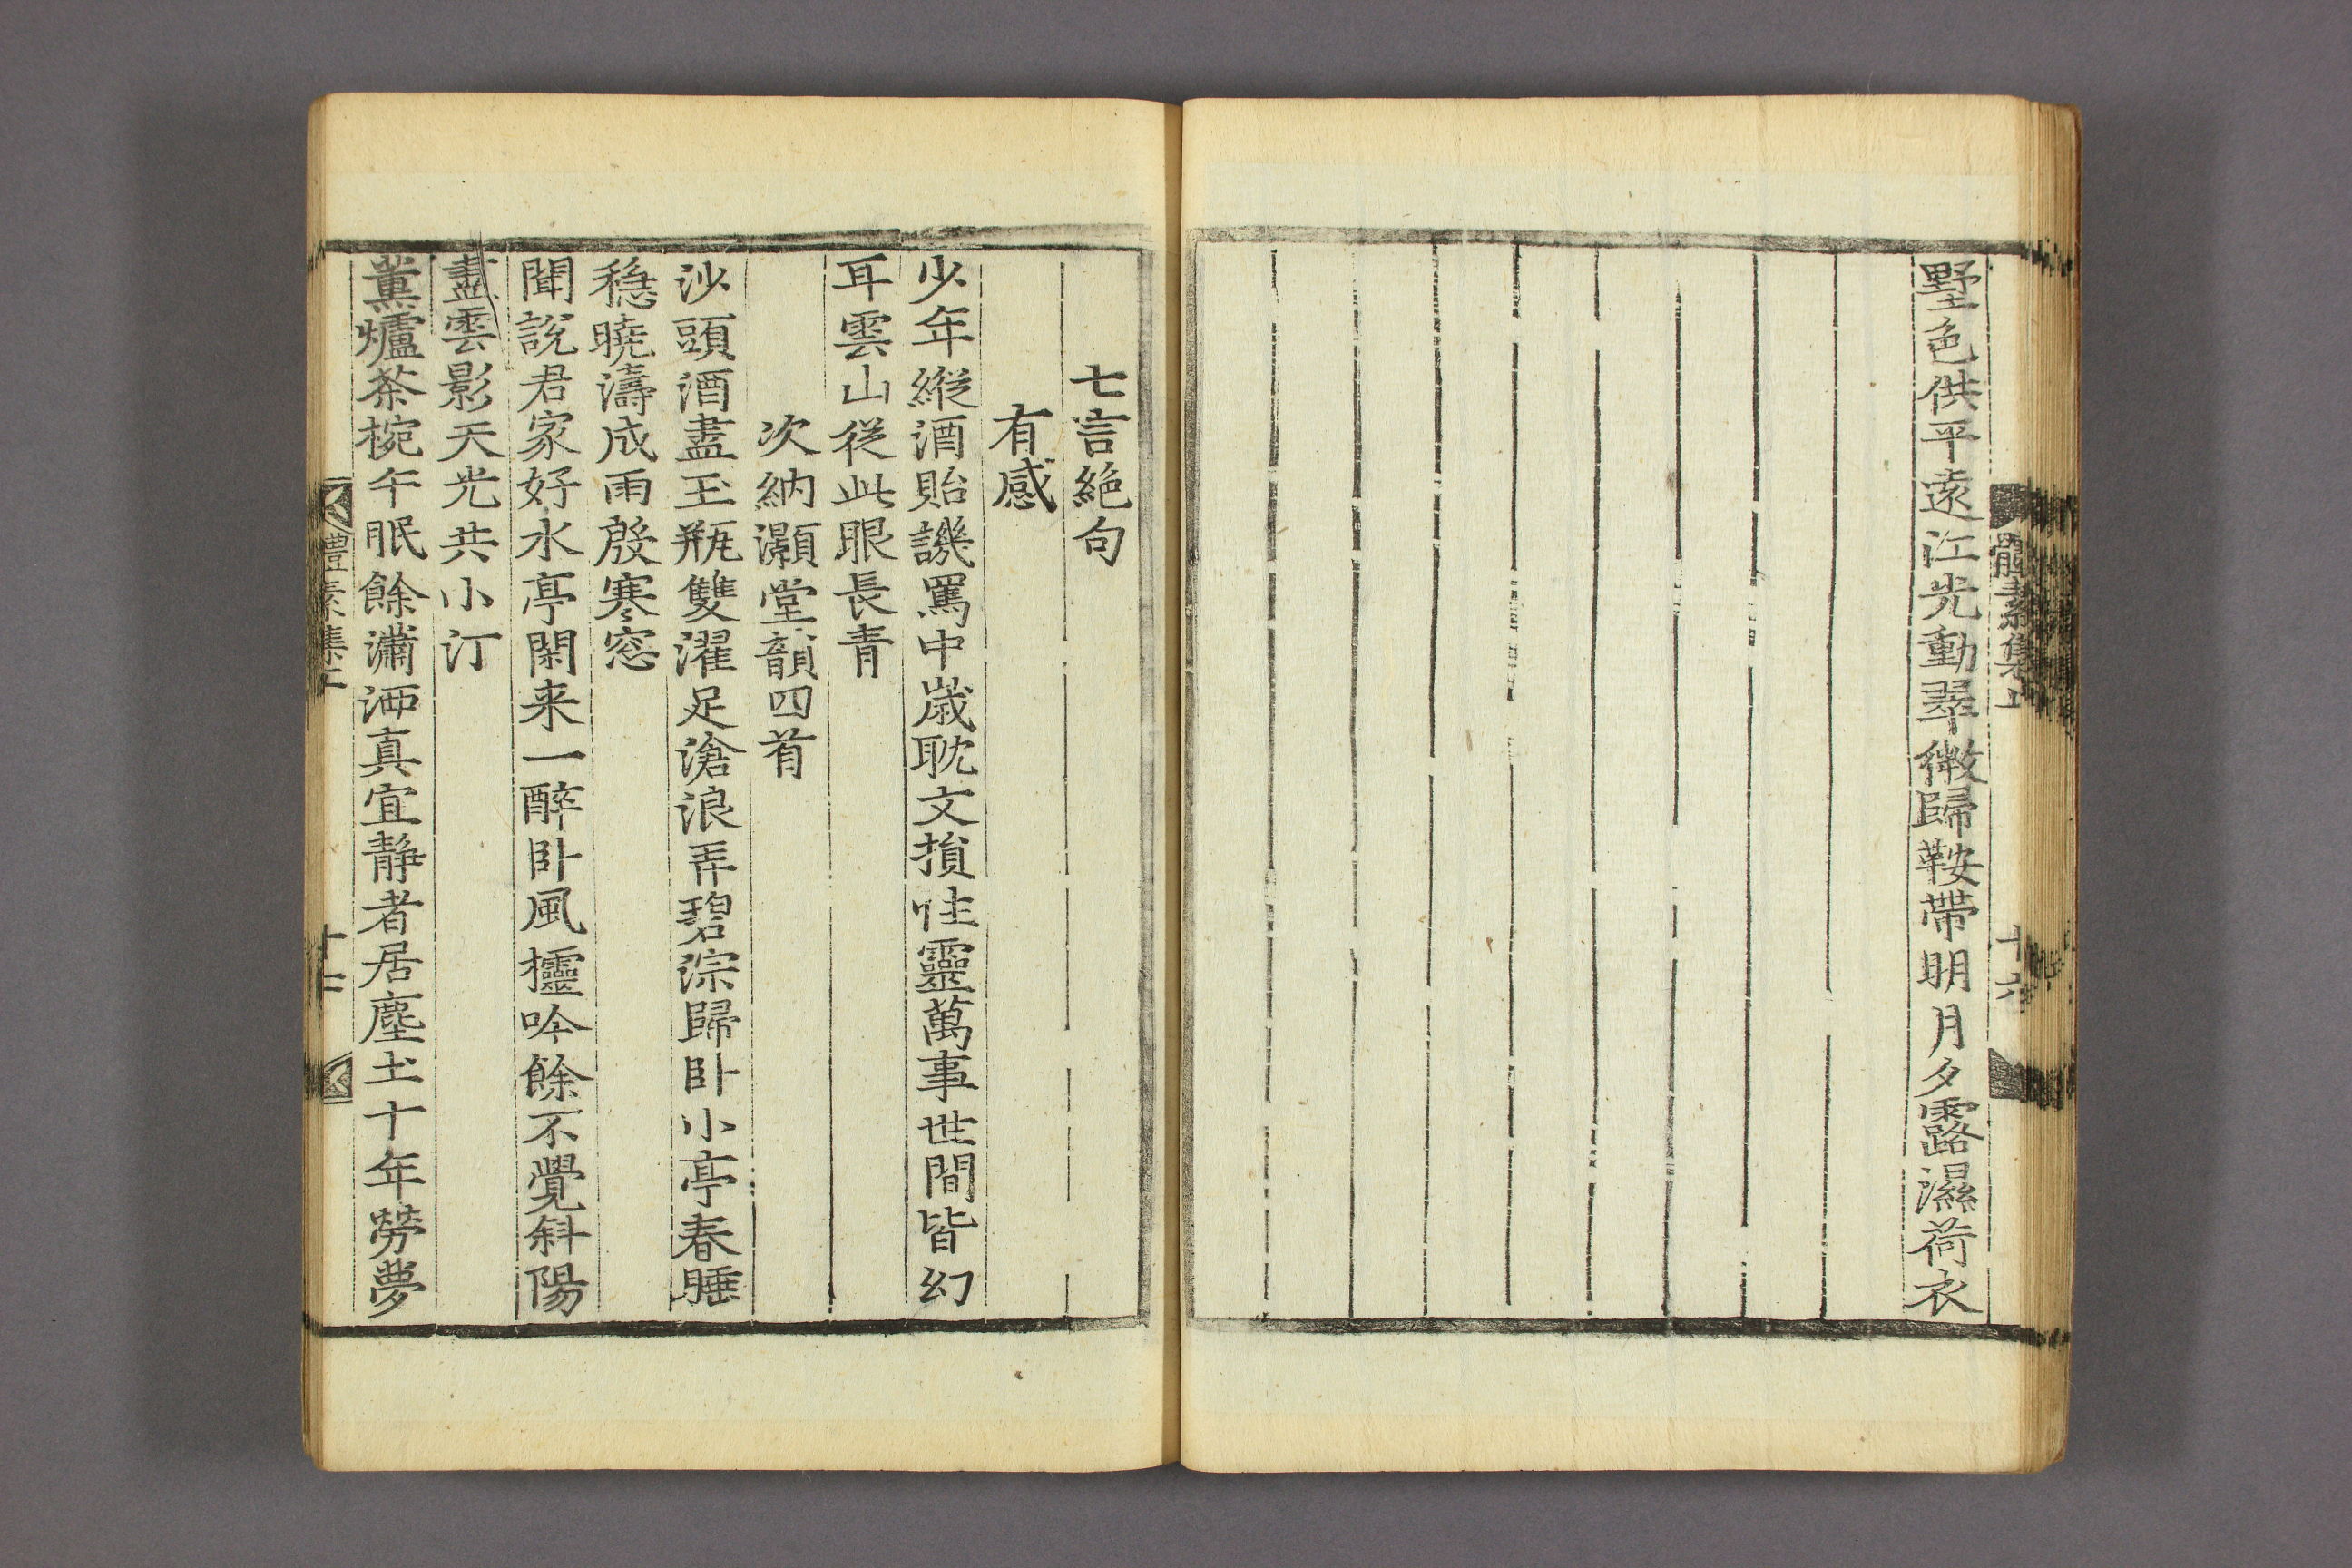 體素集上
十六
墅色供平遠江光動翠微歸鞍帶明月夕露濕荷衣
七言絶句
有感
少年縱酒貽譏罵中歲耽文損性靈萬事世間皆幻
耳雲山從此眼長青
次納灝堂韻四首
沙頭酒盡玉瓶雙濯足滄浪弄碧淙歸臥小亭春睡
穩曉濤成雨殷寒窓
聞說君家好水亭閑来一醉臥風欞吟餘不覺斜陽
盡雲影天光共小汀
薰爐茶椀午眠餘瀟洒真宜静者居塵土十年勞夢
體素集上